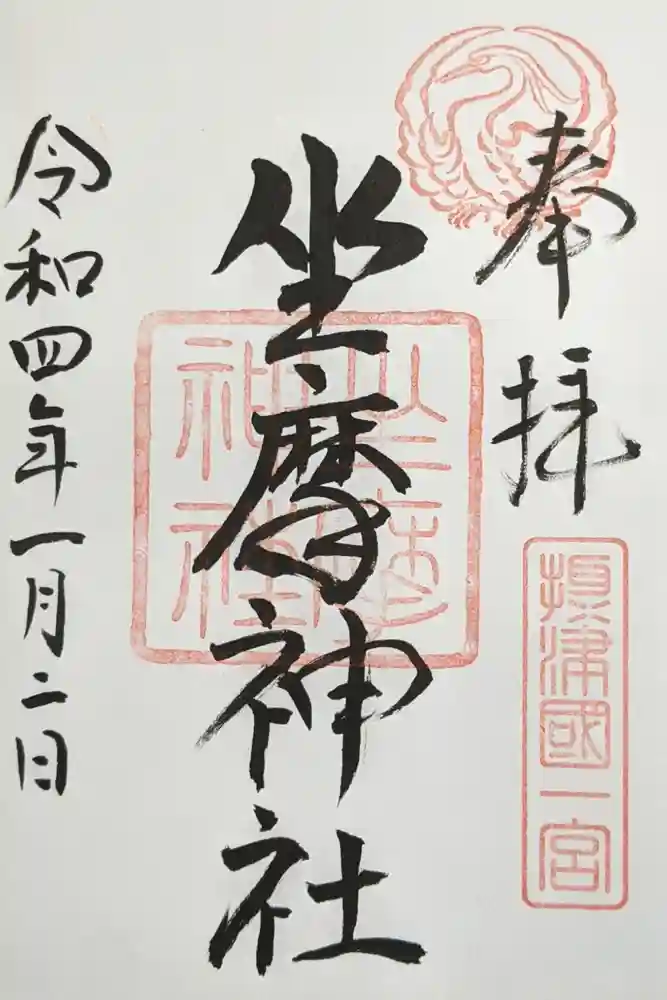 奉拝
摂津國一宮
坐摩神社
坐摩神社
令和四年一月二日